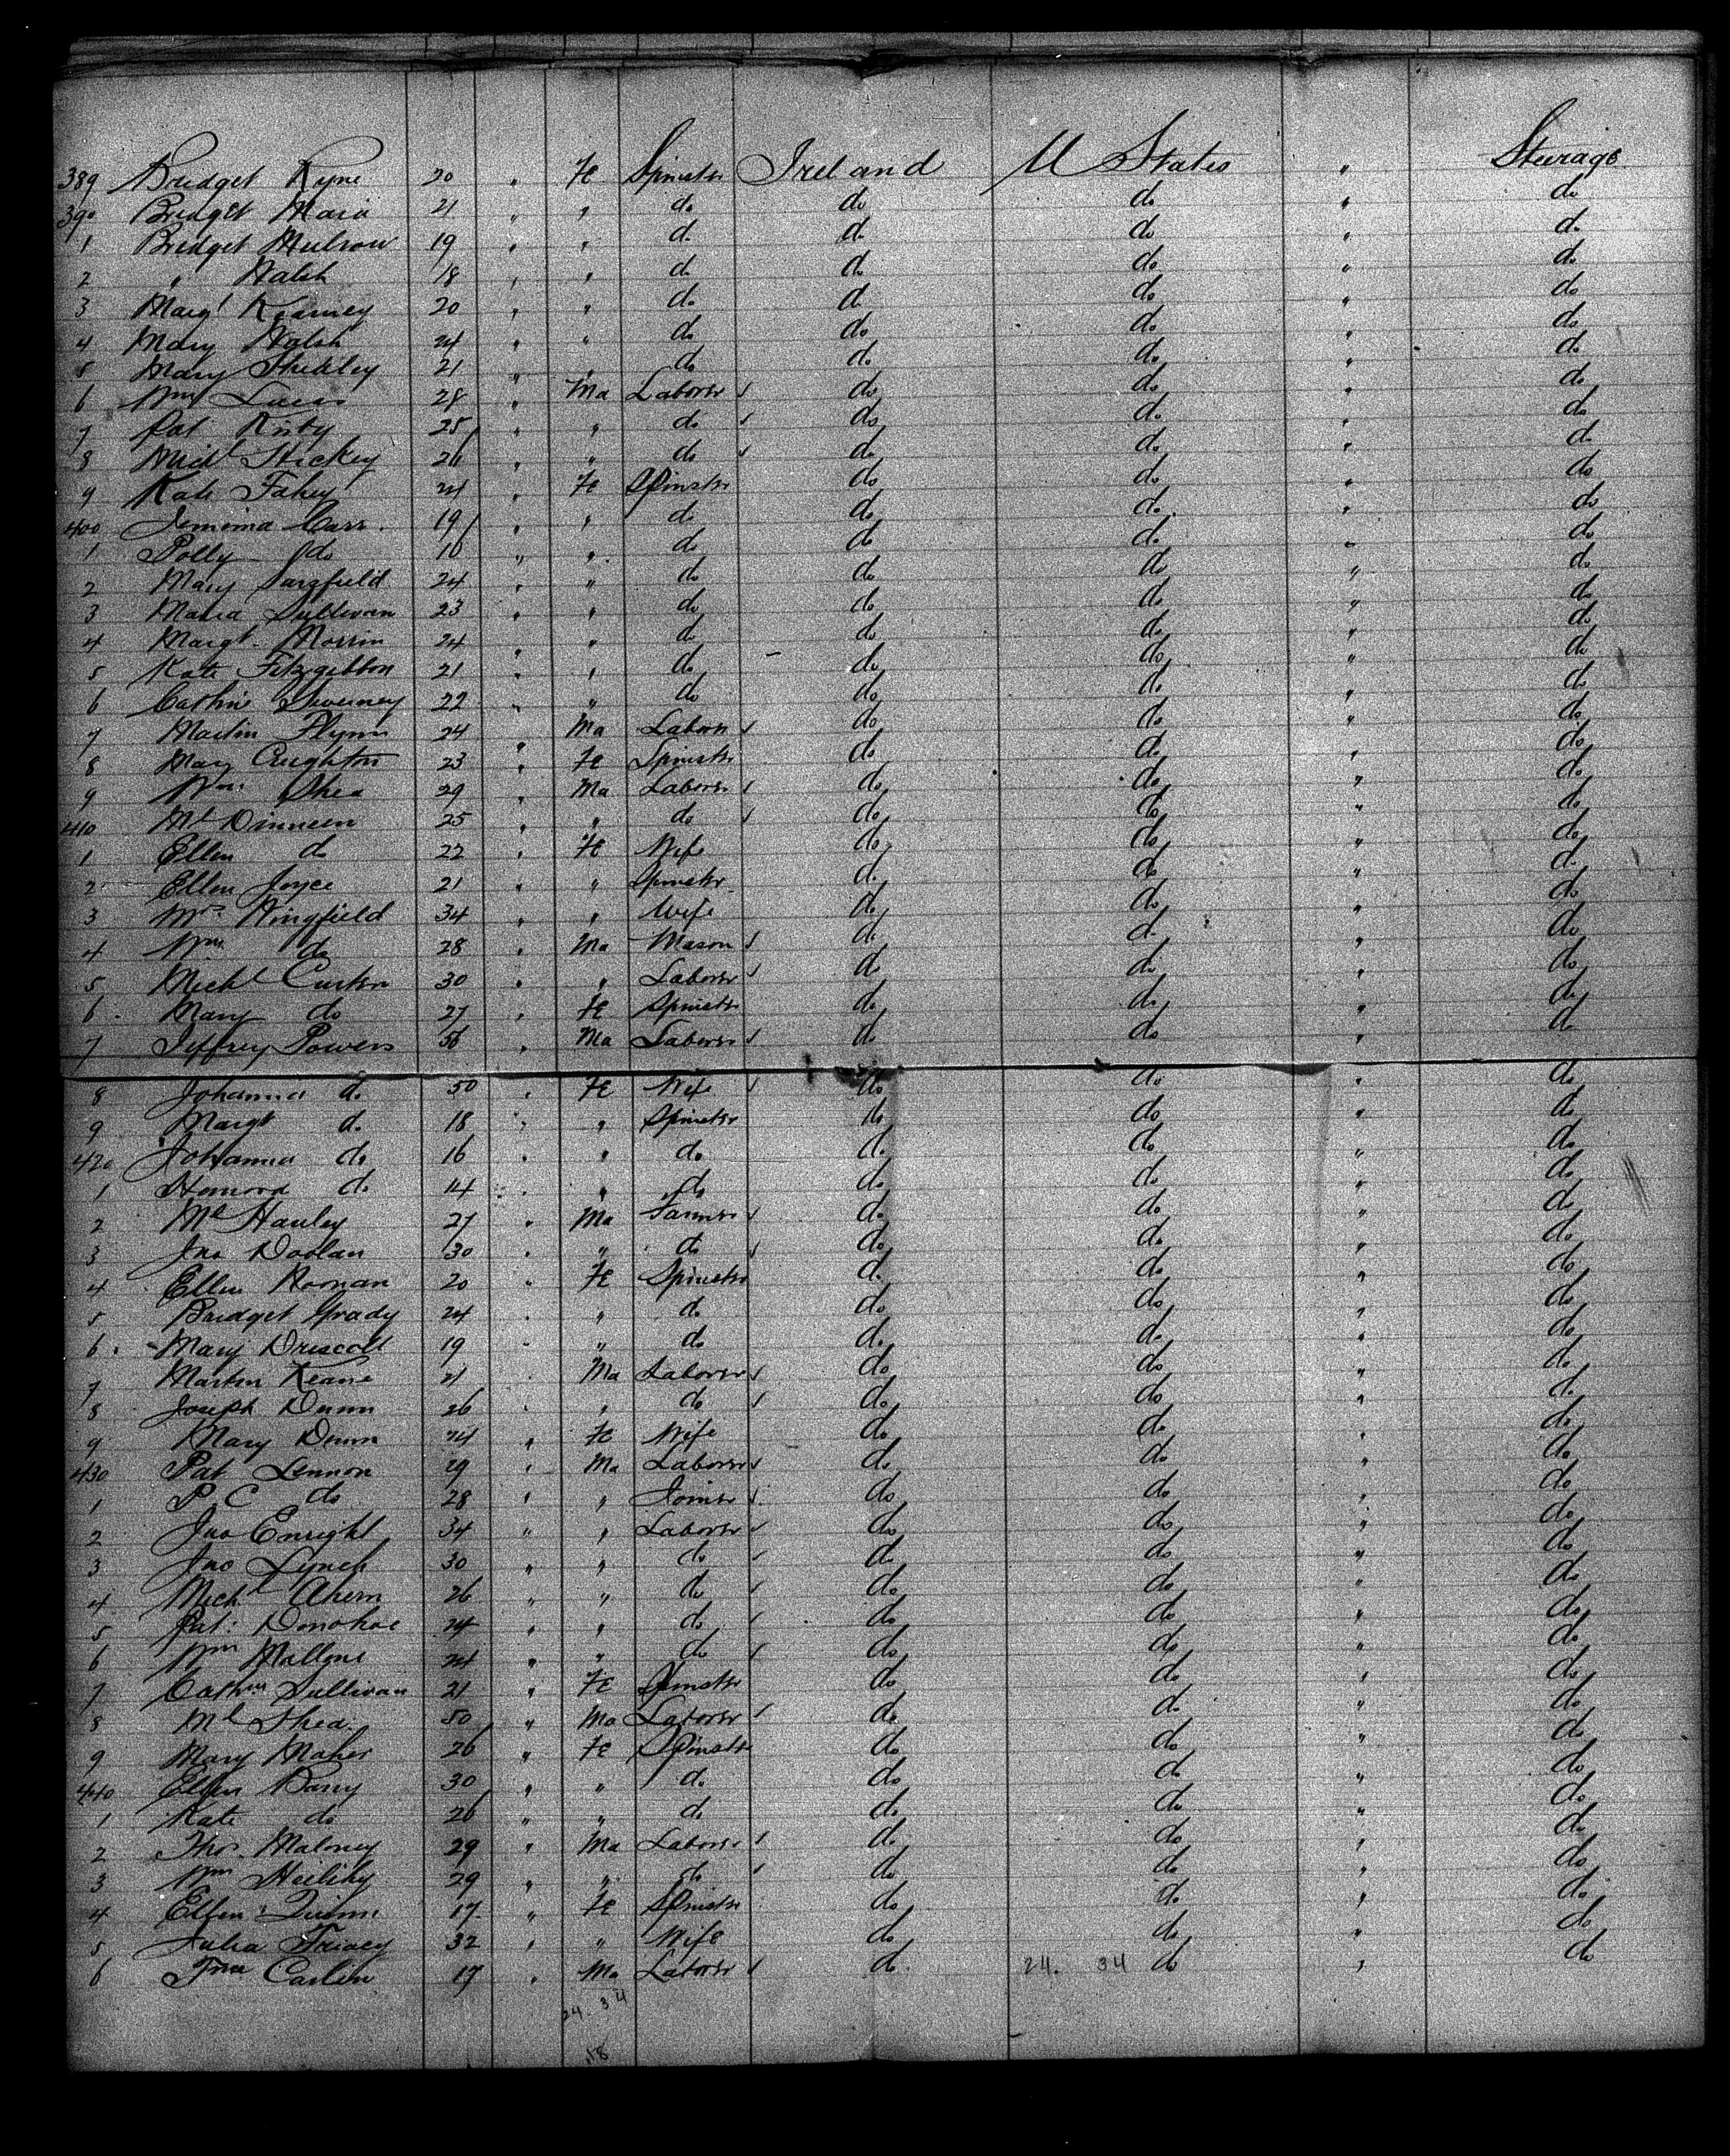 389 Bridget Ryne 20 " Fe Spinster Ireland U States " Steerage
390 Bridget Mara 21 " " do do do " do
1 Bridget 19 " " do do do " do
2 " Walsh 18 " " do do do " do
3 Margt Kearney 20 " " do do do " do
4 Mary Walsh 24 " " do do do " do
5 Mary 21 " " do do do " do
6 Wm 28 " Ma Laborer do do " do
7 Pat Kirby 25 " " do do do " do
8 Michl Hickey 26 " " do do do " do
9 Kate Fahey 24 " Fe Spinster do do " do
400 Jemima Carr 19 " " do do do " do
1 Polly do 16 " " do do do " do
2 Mary Sarsfield 24 " " do do do " do
3 Maria Sullivan 23 " " do do do " do
4 Margt Morrin 24 " " do do do " do
5 Kate Fitzgibbon 21 " " do do do " do
6 Cathne Sweeney 22 " " do do do " do
7 Martin Flynn 24 " Ma Laborer do do " do
8 Mary Creighton 23 " Fe Spinster do do " do
9 Wm Shea 29 " Ma Laborer do do " do
410 Ml Dinneen 25 " " do do do " do
1 Ellen do 22 " Fe Wife do do " do
2 Ellen Joyce 21 " " Spinster do do " do
3 Mrs Wingfield 34 " " Wife do do " do
4 Wm do 28 " Ma Mason do do " do
5 Michl 30 " " Laborer do do " do
6 Mary do 27 " Fe Spinster do do " do
7 Jeffrey Powers 56 " Ma Laborer do do " do
8 Johanna do 50 " Fe Wife do do " do
9 Margt do 18 " " Spinster do do " do
420 Johanna do 16 " " do do do " do
1 Honora do 14 " " do do do " do
2 Ml Hanley 27 " Ma Farmer do do " do
3 Jno Doolan 30 " " do do do " do
4 Ellen Noonan 20 " Fe Spinster do do " do
5 Bridget Grady 24 " " do do do " do
6 Mary Driscoll 19 " " do do do " do
7 Martin Keane 21 " Ma Laborer do do " do
8 Joseph Dunn 26 " " do do do " do
9 Mary Dunn 24 " Fe Wife do do " do
430 Pat Lennon 29 " Ma Laborer do do " do
1 P. C do 28 " " Joiner do do " do
2 Jno Enright 34 " " Laborer do do " do
3 Jno Lynch 30 " " do do do " do
4 Michl Ahern 26 " " do do do " do
5 Pat: Donohoe 24 " " do do do " do
6 Wm Mallone 24 " " do do do " do
7 Cathne Sullivan 21 " Fe Spinster do do " do
8 Ml Shea 50 " Ma Laborer do do " do
9 Mary Maher 26 " Fe Spinster do do " do
440 Ellen Barry 30 " " do do do " do
1 Kate do 26 " " do do do " do
2 Thos Maloney 29 " Ma Laborer do do " do
3 Wm 29 " " do do do " do
4 Ellen Quinn 17 " Fe Spinster do do " do
5 Julia 32 " " Wife do do " do
6 Carlin 17 " Ma Laborer do 24. 34 do " do
24. 34
18